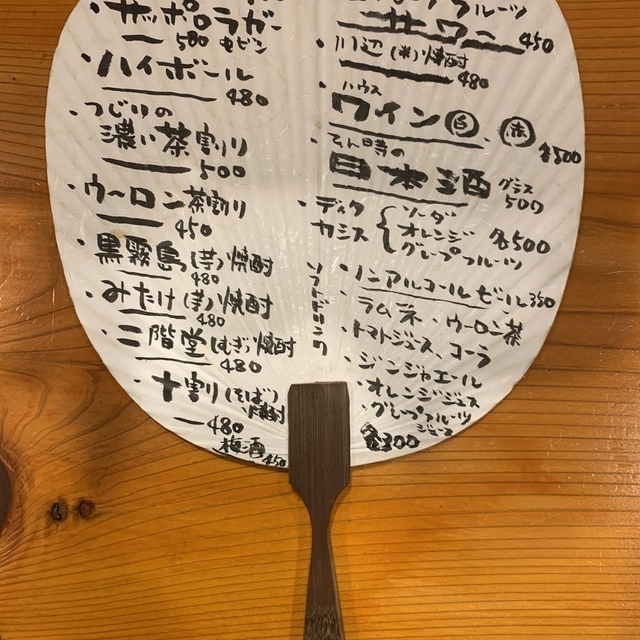 ・サッポロラガー
580 中ビン
・ハイボール
480
・つじりの
濃い茶割り
500
・ウーロン茶割り
450
・黒霧島(芋)焼酎
480
・みたけ(芋)焼酎
480
・二階堂(むぎ)焼酎
480
・十割(そば)焼酎
480
梅酒450
フルーツ
サワー 450
・川辺(米)焼酎
480
・ハウス
ワイン 白、赤
各500
・その時の
日本酒 グラス
500
・ディタ
カシス
ソーダ
オレンジ
グレープフルーツ
各500
ソフトドリンク
・ノンアルコールビール350
・ラムネ、ウーロン茶
・トマトジュース、コーラ
・ジンジャエール
・オレンジジュース
・グレープフルーツ
ジュース
各300